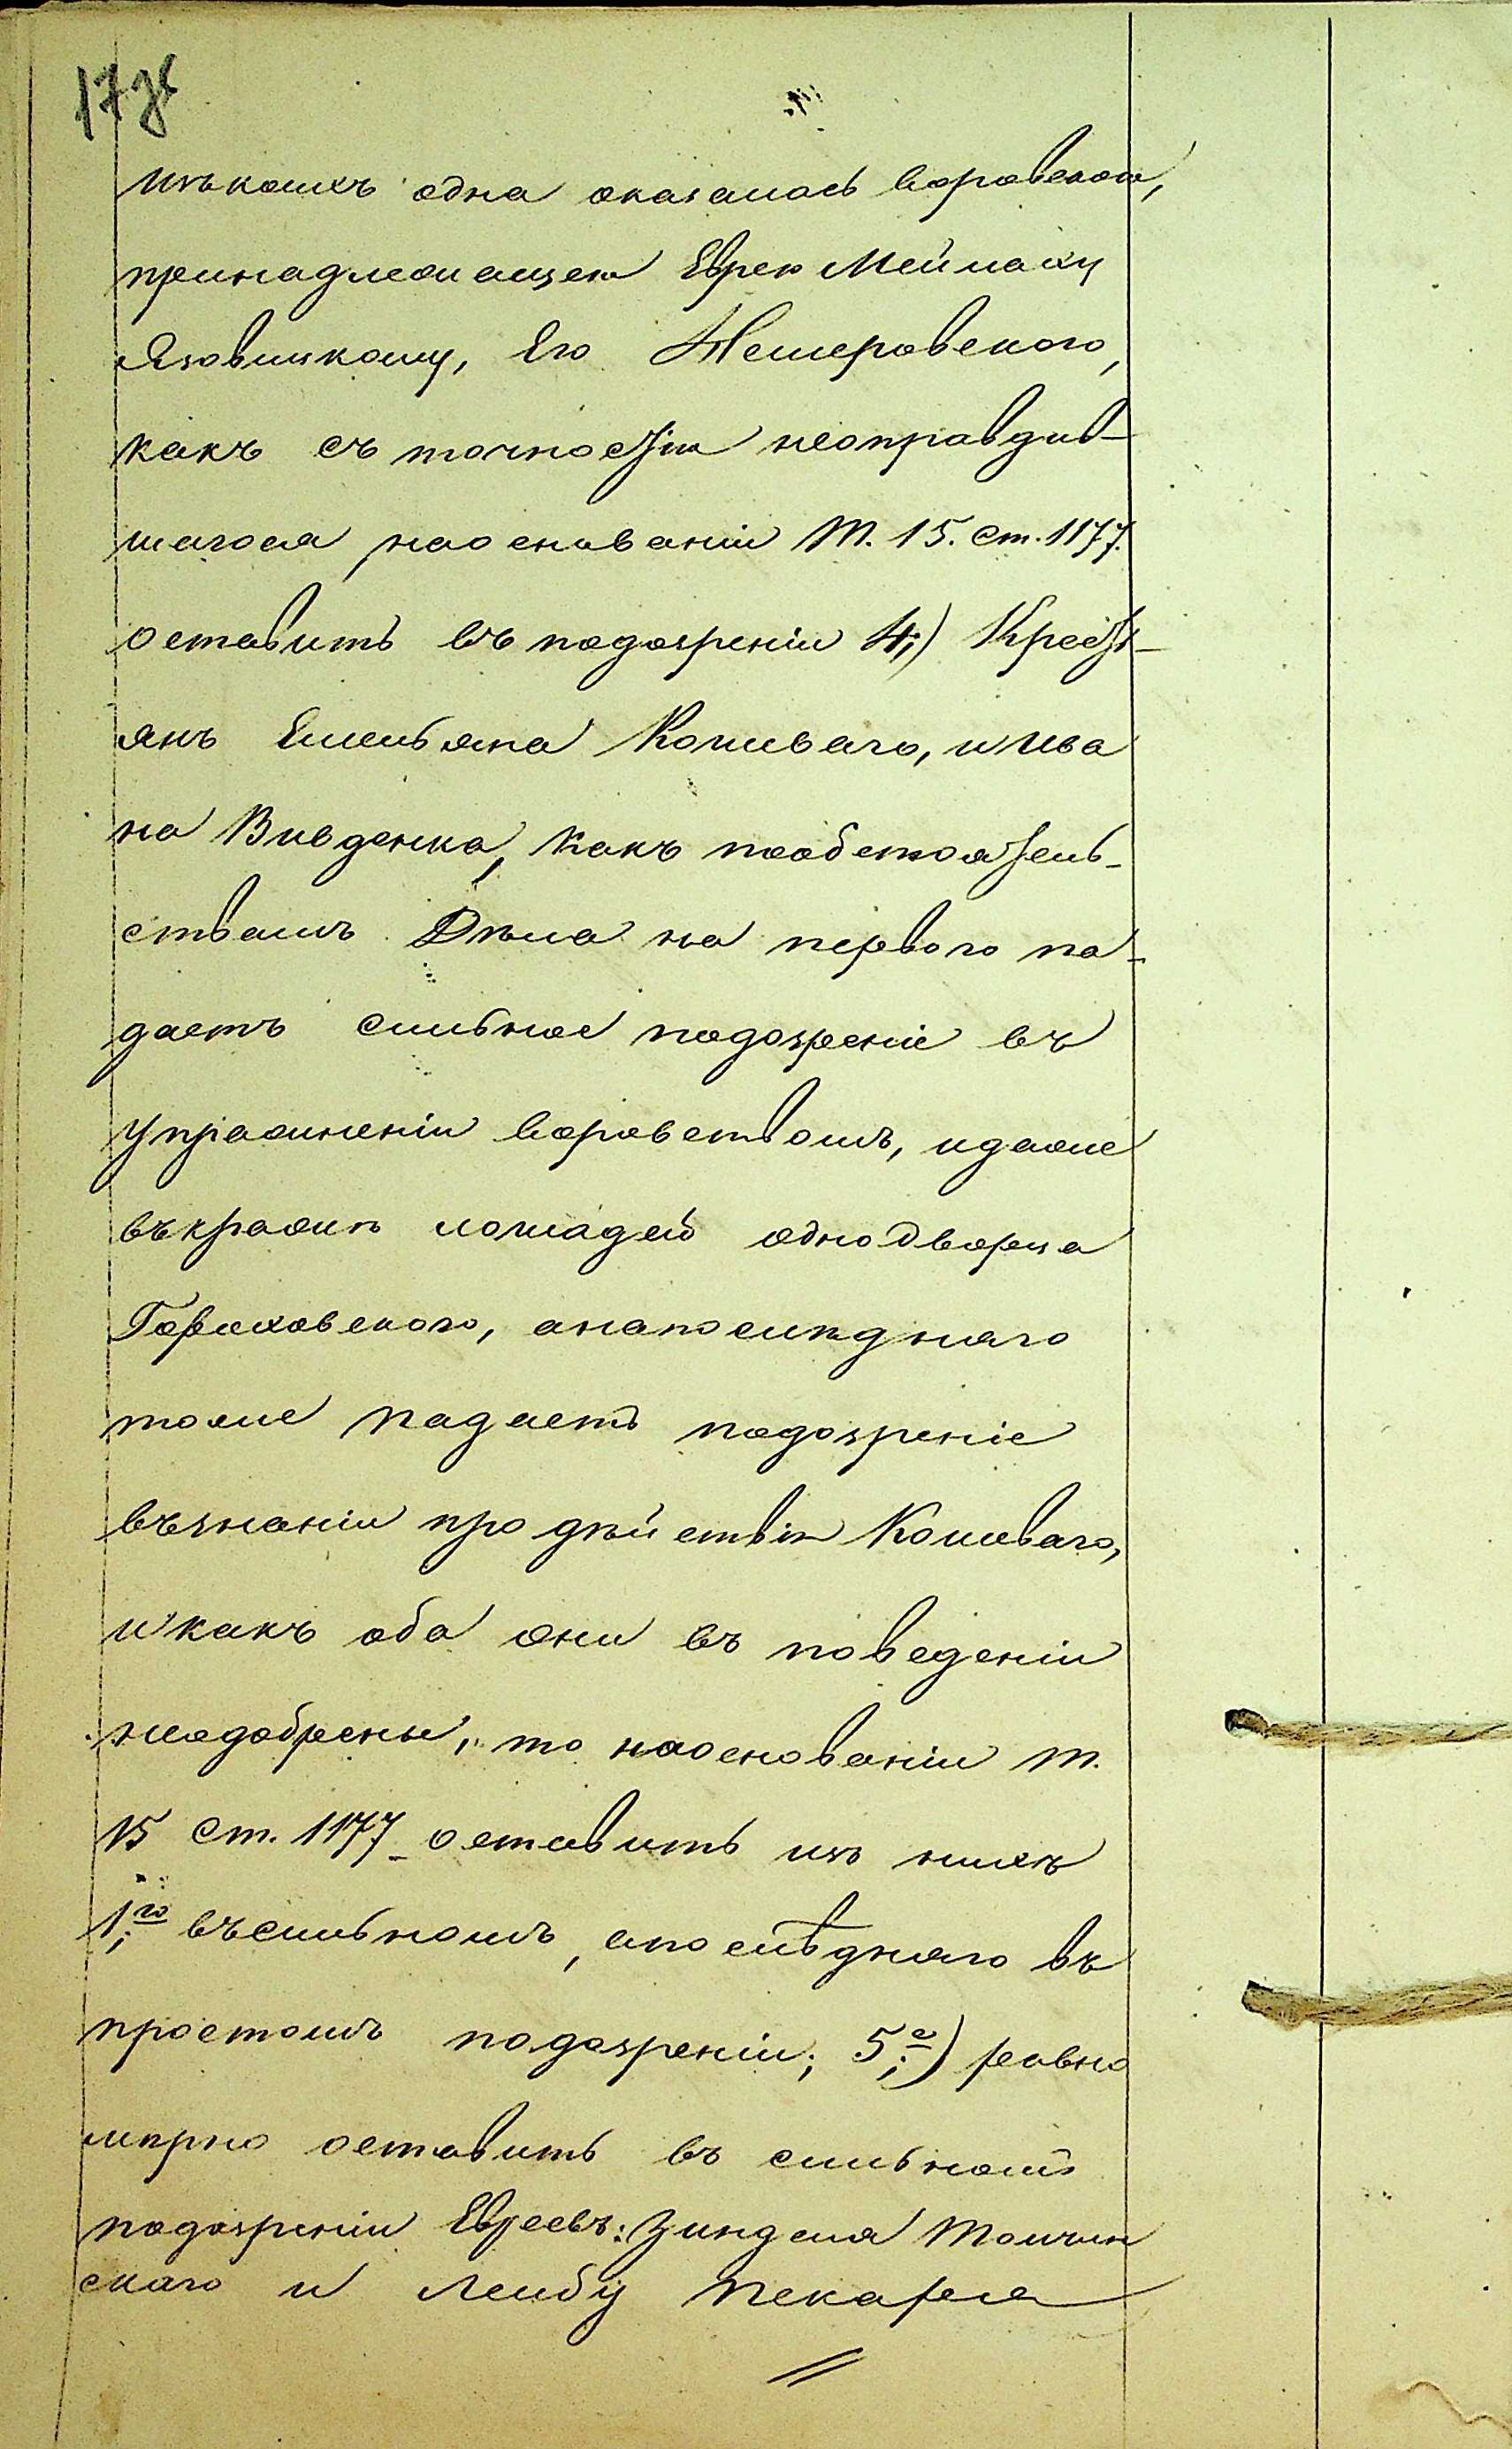 17 об
изъ коихъ одна оказалась воровскою,
принадлежащею Еврею Мейлаху
Язовицкому, Его Немеровского,
какъ съ точностію неоправдив-
шагося наоснованіи т. 15. ст. 1177.
оставить въ подозреніи 4;) Крестъ-
янъ Емельяна Кошеваго, и Ива
на Вивденка, какъ пообстоятель-
ствамъ Дѣла на первого па-
даетъ сильное подозреніе въ
упражненіи воровствомъ, идаже
въкражѣ лошадей однодворца
Гориховского, анапослѣдняго
тоже падаетъ подозреніе
възнаніи про дѣйствія Кошеваго,
икакъ оба они въ поведеніи
неодобрены, то наоснованіи т.
15 ст. 1177 оставить изъ нихъ
1;го въсильномъ, апослѣдняго въ
простомъ подозреніи; 5;е) равно
мѣрно оставить въ сильномъ
подозреніи Евреевъ: Зинделя Толчин
скаго и Лейбу Пекаря